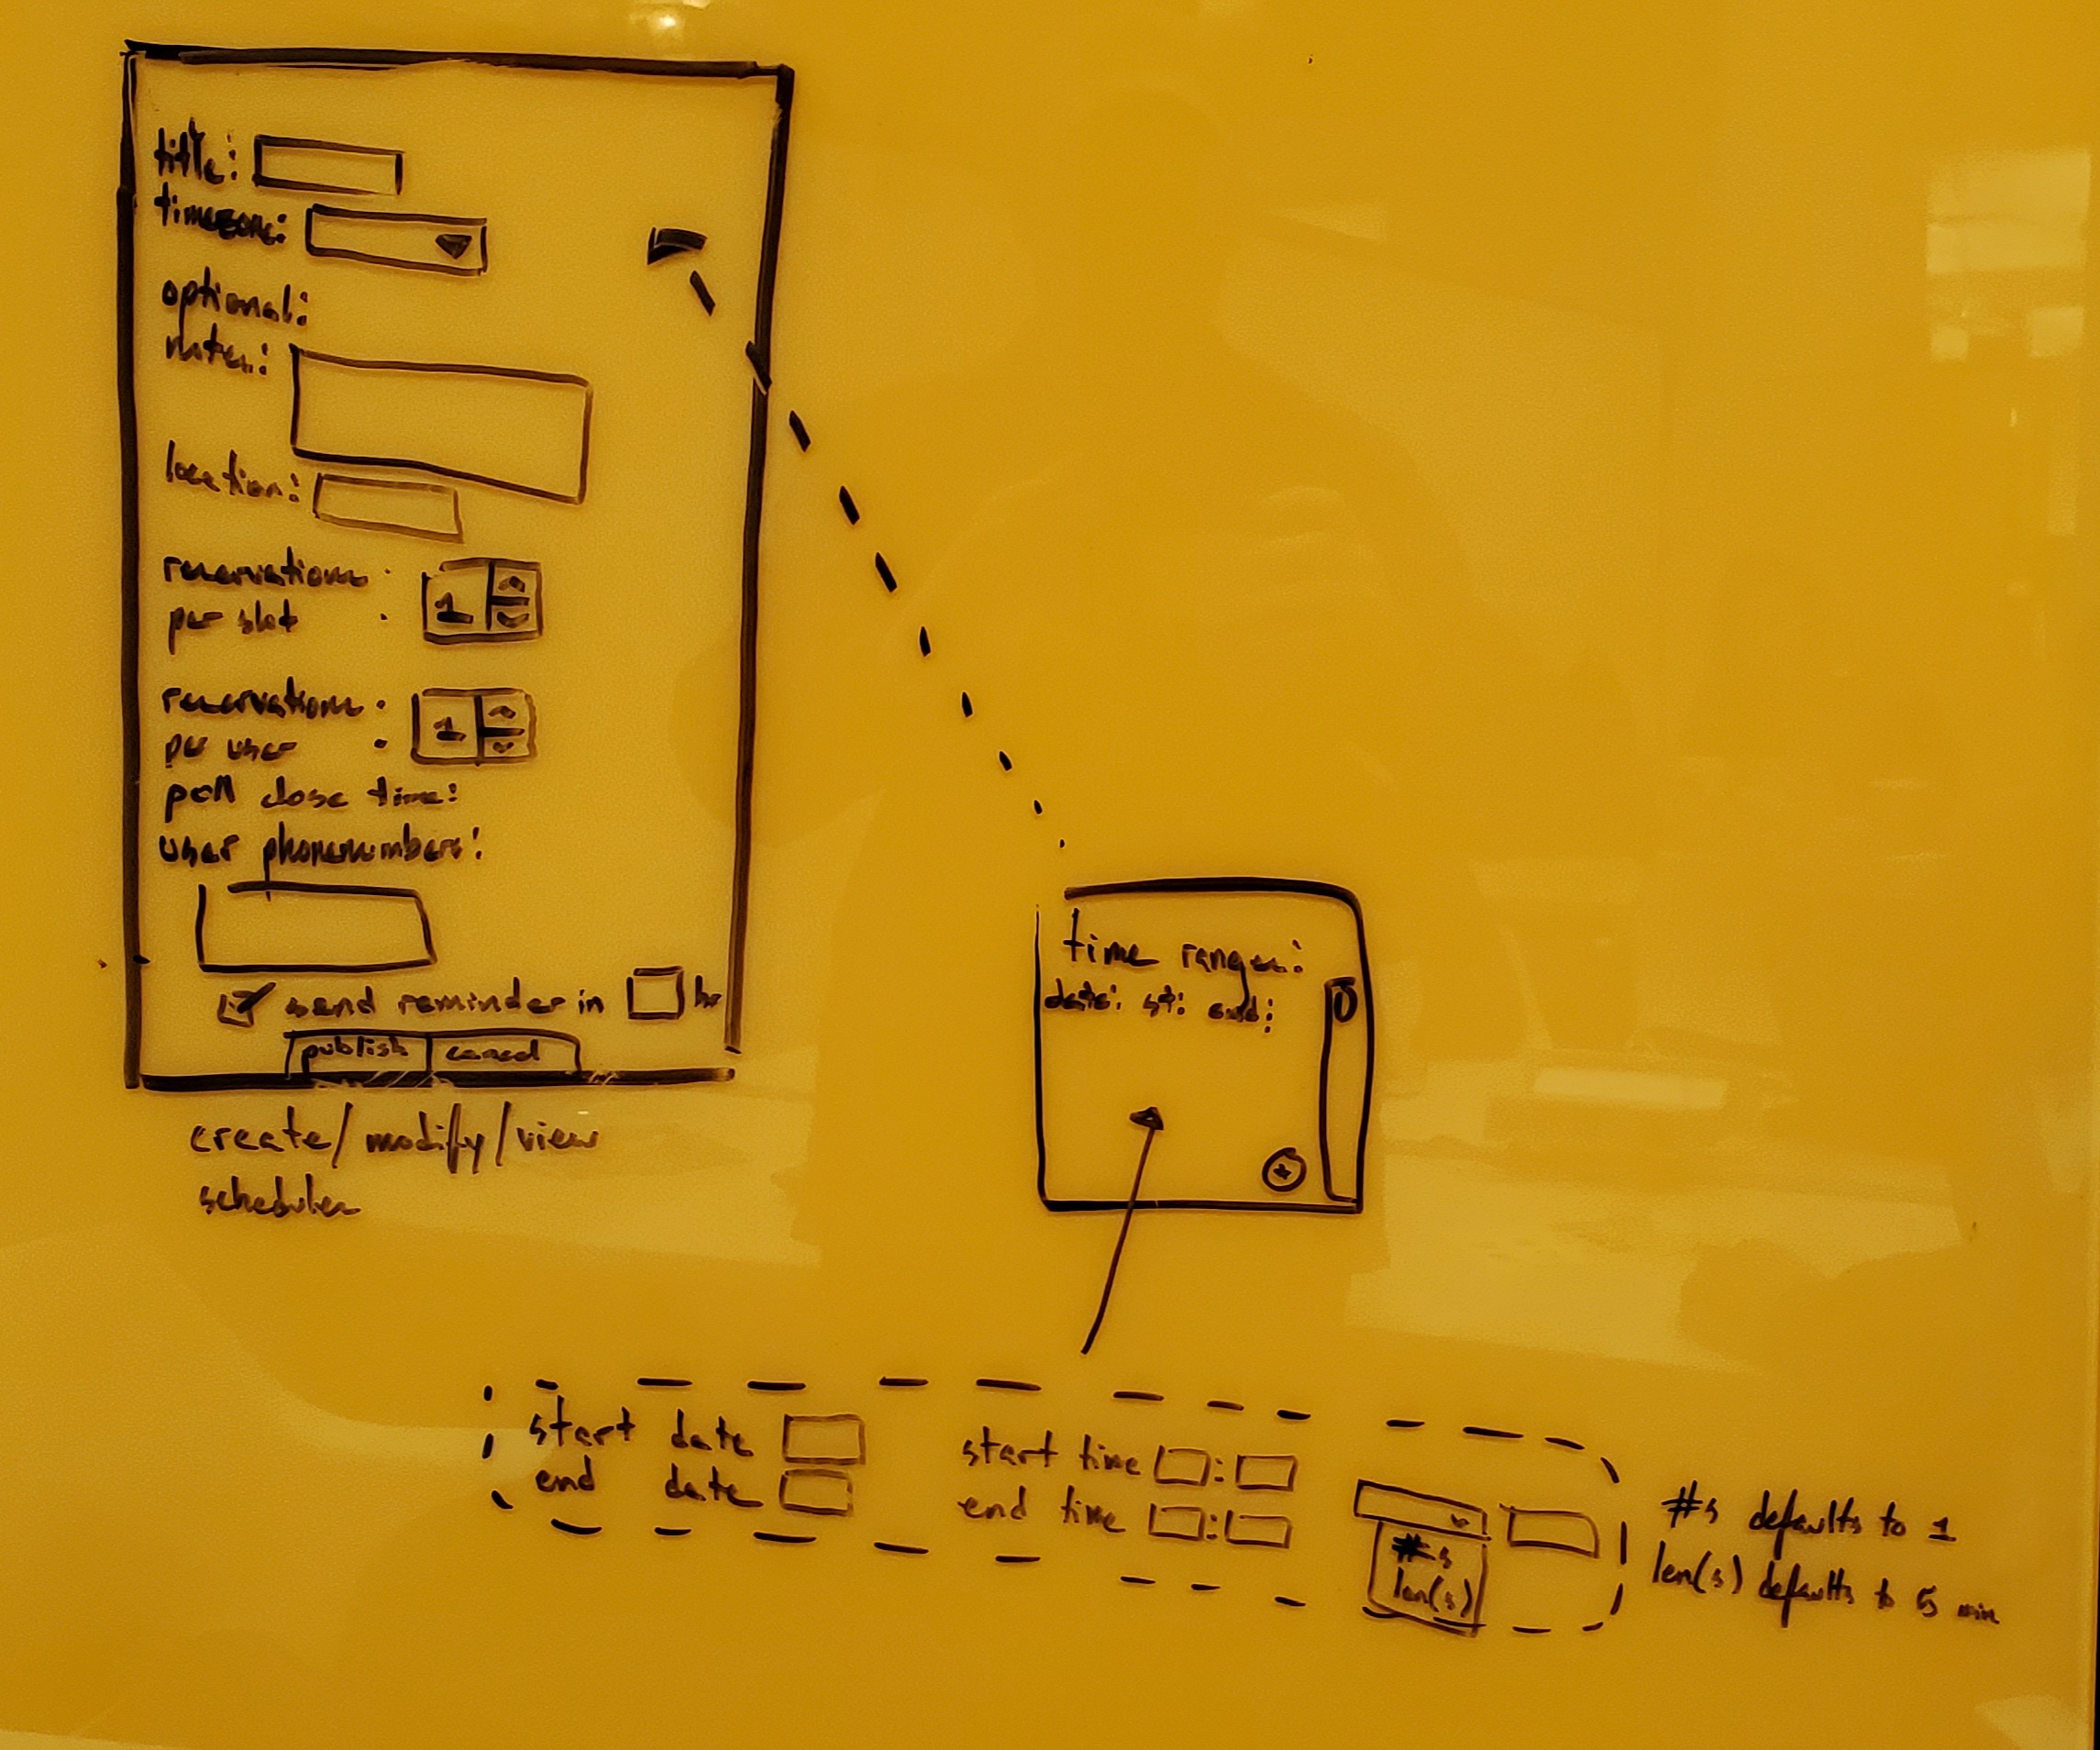 title:
timezone:
optional:
notes:
location:
reservations
per slot :
1
reservations
per user :
1
poll close time:
user phonenumbers:
send reminder in hr
publish cancel
create/modify/view
scheduler
time ranges:
date: st: end:
+
start date
end date
start time :
end time :
#s
len(s)
#s defaults to 1
len(s) defaults to 5 min